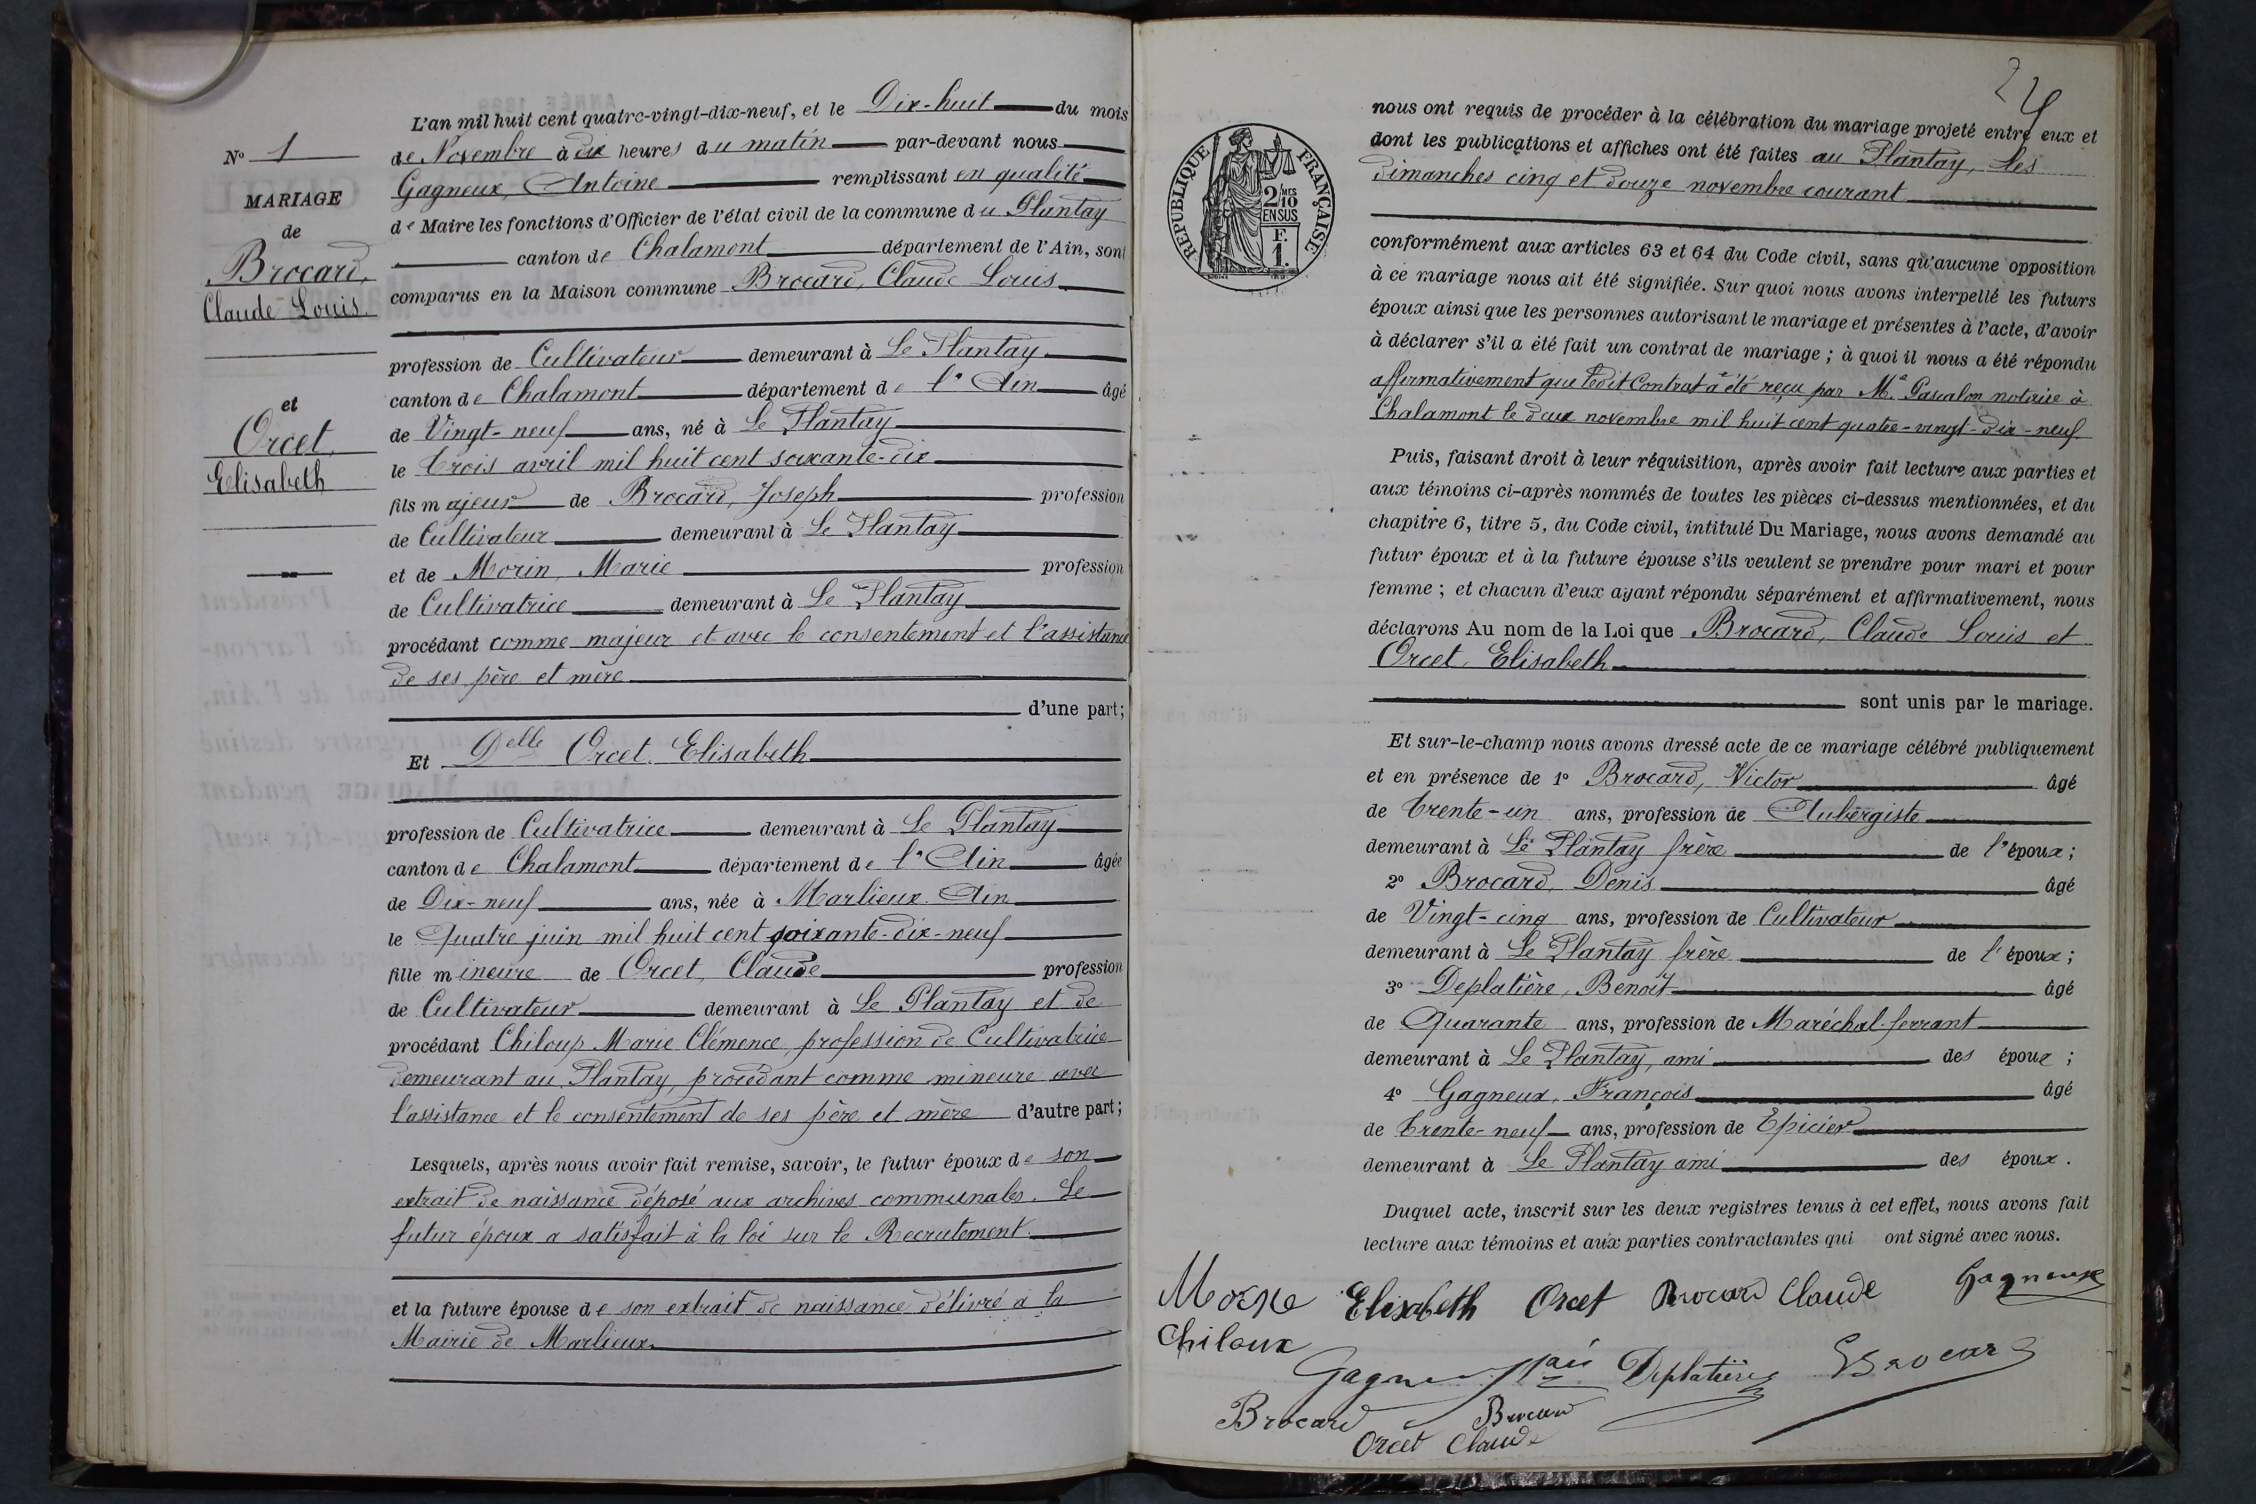 N° 1
MARIAGE
de
Brocard,
Claude Louis
et
Orcet,
Elisabeth
L'an mil huit cent quatre-vingt-dix-neuf, et le Dix-huit du mois
de Novembre à dix heures du matin par-devant nous
Gagneux, Antoine remplissant en qualité
de Maire les fonctions d'Officier de l'état civil de la commune du Plantay
canton de Chalamont département de l'Ain, sont
comparus en la Maison commune Brocard, Claude Louis
profession de Cultivateur demeurant à Le Plantay
canton de Chalamont département de l'Ain âgé
de Vingt-neuf ans, né à Le Plantay
le trois avril mil huit cent soixante-dix
fils majeur de Brocard, Joseph profession
de Cultivateur demeurant à Le Plantay
et de Morin, Marie profession
de Cultivatrice demeurant à Le Plantay
procédant comme majeur et avec le consentement et l'assistance
de ses père et mère
d'une part;
Et Delle Orcet, Elisabeth
profession de Cultivatrice demeurant à Le Plantay
canton de Chalamont département de l'Ain âgée
de Dix-neuf ans, née à Marlieux Ain
le Quatre juin mil huit cent soixante-dix-neuf
fille mineure de Orcet, Claude profession
de Cultivateur demeurant à Le Plantay et de
procédant Chiloup Marie Clémence, profession de Cultivatrice
demeurant au Plantay, procédant comme mineure avec
l'assistance et le consentement de ses père et mère d'autre part;
Lesquels, après nous avoir fait remise, savoir, le futur époux de son
extrait de naissance déposé aux archives communales. Le
futur époux a satisfait à la loi sur le Recrutement.
et la future épouse de son extrait de naissance délivré à la
Mairie de Marlieux
24
RÉPUBLIQUE FRANÇAISE
2/10 MES
EN SUS
F.
1.
nous ont requis de procéder à la célébration du mariage projeté entre eux et
dont les publications et affiches ont été faites au Plantay, les
Dimanches cinq et douze novembre courant
conformément aux articles 63 et 64 du Code civil, sans qu'aucune opposition
à ce mariage nous ait été signifiée. Sur quoi nous avons interpellé les futurs
époux ainsi que les personnes autorisant le mariage et présentes à l'acte, d'avoir
à déclarer s'il a été fait un contrat de mariage ; à quoi il nous a été répondu
affirmativement que ledit Contrat a été reçu par Me Pascalon notaire à
Chalamont le deux novembre mil huit cent quatre-vingt-dix-neuf
Puis, faisant droit à leur réquisition, après avoir fait lecture aux parties et
aux témoins ci-après nommés de toutes les pièces ci-dessus mentionnées, et du
chapitre 6, titre 5, du Code civil, intitulé Du Mariage, nous avons demandé au
futur époux et à la future épouse s'ils veulent se prendre pour mari et pour
femme ; et chacun d'eux ayant répondu séparément et affirmativement, nous
déclarons Au nom de la Loi que Brocard, Claude Louis et
Orcet, Elisabeth
sont unis par le mariage.
Et sur-le-champ nous avons dressé acte de ce mariage célébré publiquement
et en présence de 1° Brocard, Victor âgé
de trente-un ans, profession de Aubergiste
demeurant à Le Plantay frère de l'époux;
2° Brocard, Denis âgé
de Vingt-cinq ans, profession de Cultivateur
demeurant à Le Plantay frère de l'époux;
3° Deplatière, Benoit âgé
de Quarante ans, profession de Maréchal-ferrant
demeurant à Le Plantay, ami des époux ;
4° Gagneux, François âgé
de trente-neuf ans, profession de Epicier
demeurant à Le Plantay ami des époux.
Duquel acte, inscrit sur les deux registres tenus à cet effet, nous avons fait
lecture aux témoins et aux parties contractantes qui ont signé avec nous.
Elisabeth Orcet Brocard Claude Gagneux
Chiloux
Deplatière Brocard
Brocard Brocard
Orcet Claude